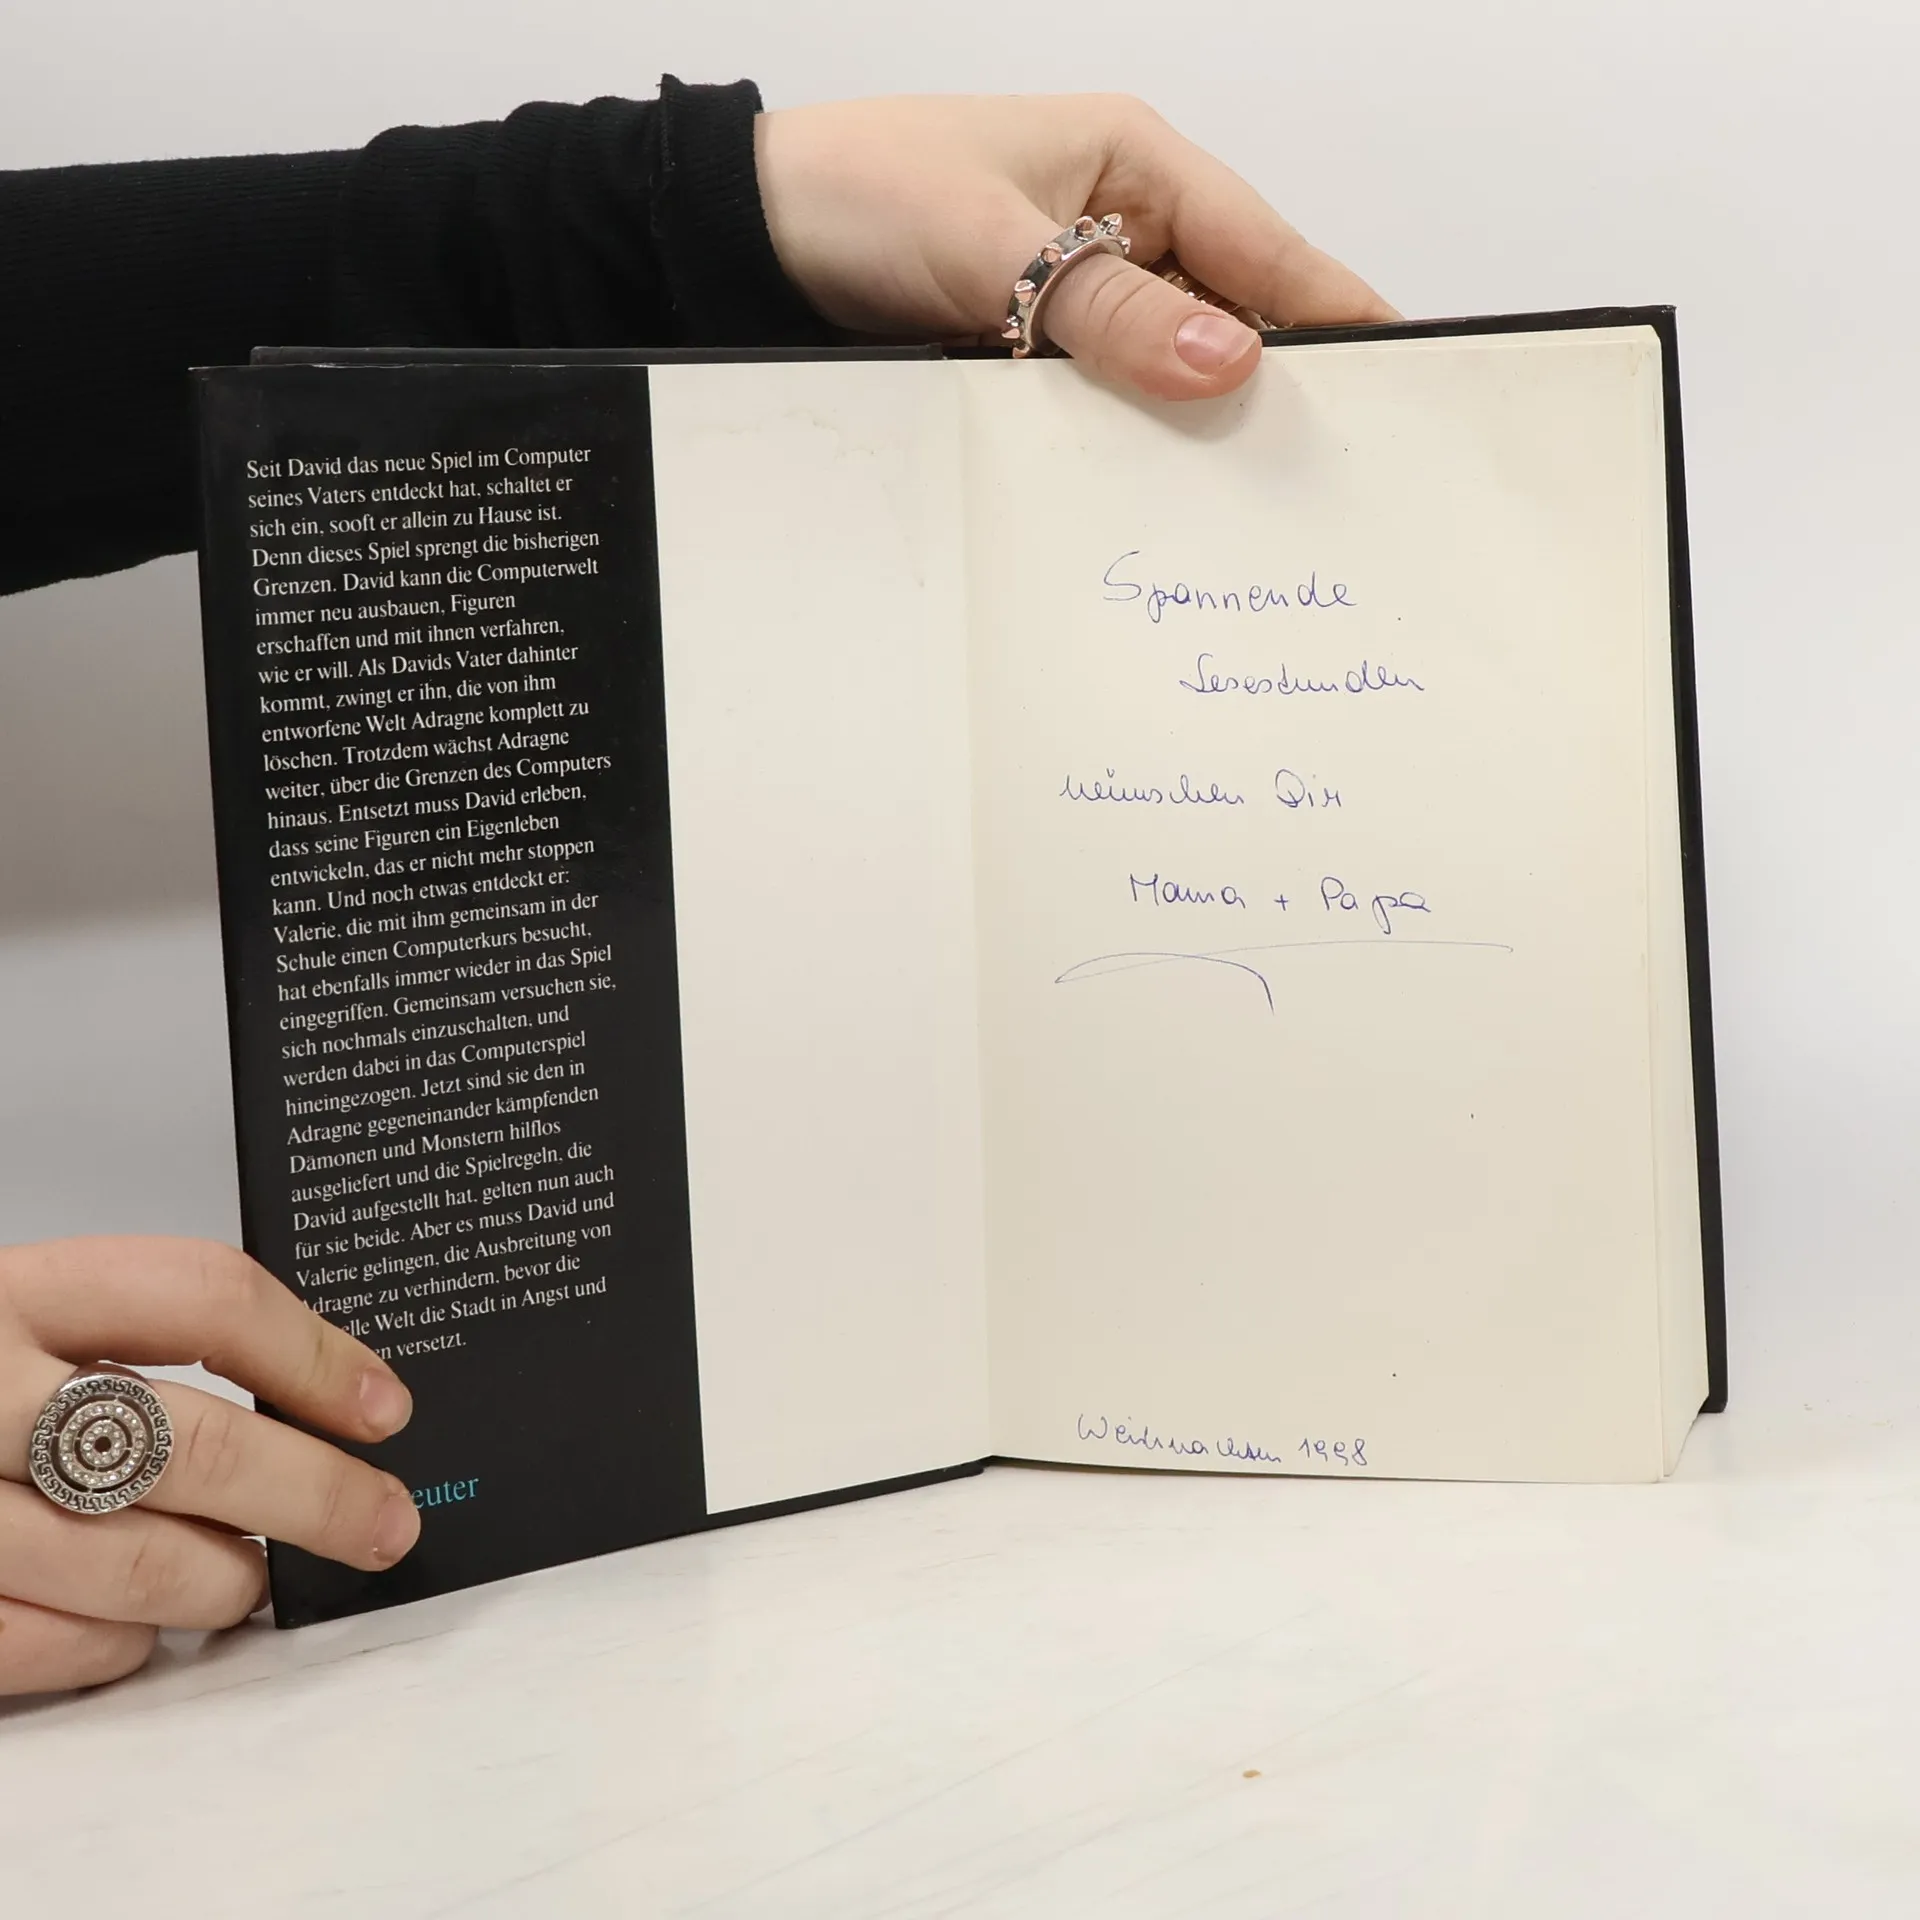 Seit David das neue Spiel im Computer
seines Vaters entdeckt hat, schaltet er
sich ein, sooft er allein zu Hause ist.
Denn dieses Spiel sprengt die bisherigen
Grenzen. David kann die Computerwelt
immer neu ausbauen, Figuren
erschaffen und mit ihnen verfahren,
wie er will. Als Davids Vater dahinter
kommt, zwingt er ihn, die von ihm
entworfene Welt Adragne komplett zu
löschen. Trotzdem wächst Adragne
weiter, über die Grenzen des Computers
hinaus. Entsetzt muss David erleben,
dass seine Figuren ein Eigenleben
entwickeln, das er nicht mehr stoppen
kann. Und noch etwas entdeckt er:
Valerie, die mit ihm gemeinsam in der
Schule einen Computerkurs besucht,
hat ebenfalls immer wieder in das Spiel
eingegriffen. Gemeinsam versuchen sie,
sich nochmals einzuschalten, und
werden dabei in das Computerspiel
hineingezogen. Jetzt sind sie den in
Adragne gegeneinander kämpfenden
Dämonen und Monstern hilflos
ausgeliefert und die Spielregeln, die
David aufgestellt hat, gelten nun auch
für sie beide. Aber es muss David und
Valerie gelingen, die Ausbreitung von
dragne zu verhindern, bevor die
elle Welt die Stadt in Angst und
en versetzt.
euter
Spannende
Lesestunden
wünschen Dir
Mama + Papa
Weihnachten 1998